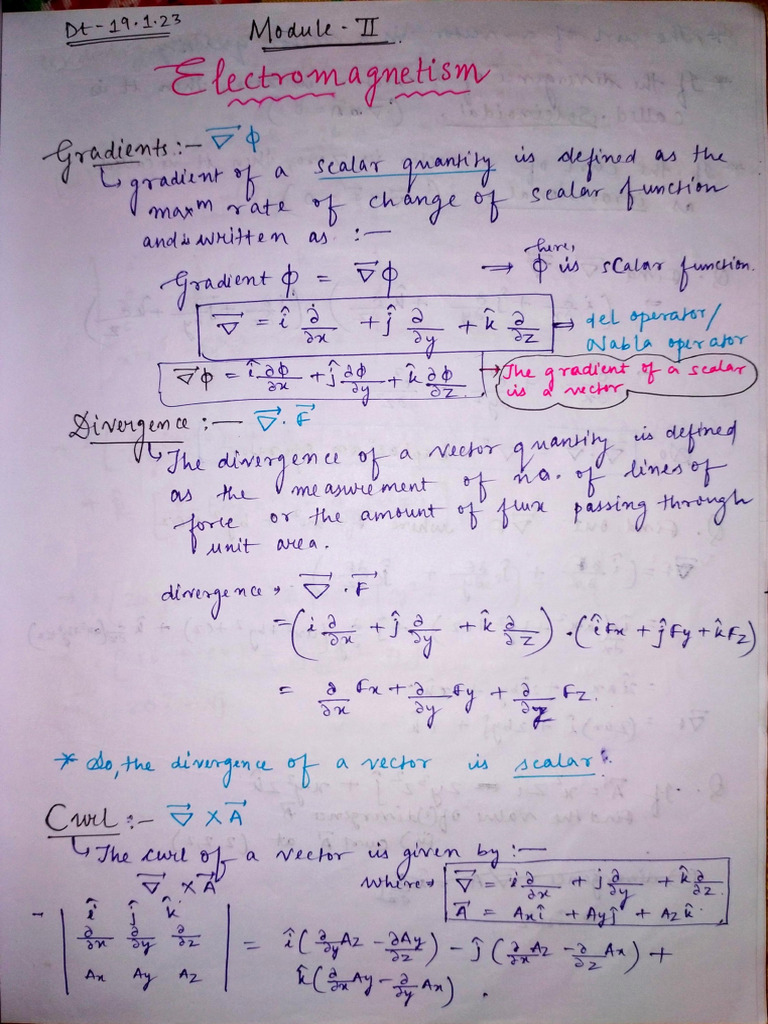 Dt - 19.1.23
Module - II
Electromagnetism
Gradients :- ∇⃗ϕ
↳ gradient of a scalar quantity is defined as the
maxᵐ rate of change of scalar function
and is written as :-
Gradient ϕ = ∇⃗ϕ → here, ϕ is scalar function.
∇⃗ = î ∂/∂x + ĵ ∂/∂y + k̂ ∂/∂z ⇒ del operator/
Nabla operator
∇⃗ϕ = î ∂ϕ/∂x + ĵ ∂ϕ/∂y + k̂ ∂ϕ/∂z → The gradient of a scalar
is a vector
Divergence :- ∇⃗.F⃗
↳ The divergence of a vector quantity is defined
as the measurement of no. of lines of
force or the amount of flux passing through
unit area.
divergence → ∇⃗.F⃗
= (i ∂/∂x + ĵ ∂/∂y + k̂ ∂/∂z) . (îFx + ĵFy + k̂Fz)
= ∂/∂x Fx + ∂/∂y Fy + ∂/∂z Fz.
* So, the divergence of a vector is scalar.
Curl :- ∇⃗ × A⃗
↳ The curl of a vector is given by :-
∇⃗ × A⃗ where → ∇⃗ = i ∂/∂x + j ∂/∂y + k̂ ∂/∂z
A⃗ = Axî + Ayĵ + Azk̂
- | î ĵ k̂ |
| ∂/∂x ∂/∂y ∂/∂z | = î(∂/∂y Az - ∂Ay/∂z) - ĵ(∂/∂x Az - ∂/∂z Ax) +
| Ax Ay Az | k̂(∂/∂x Ay - ∂/∂y Ax).